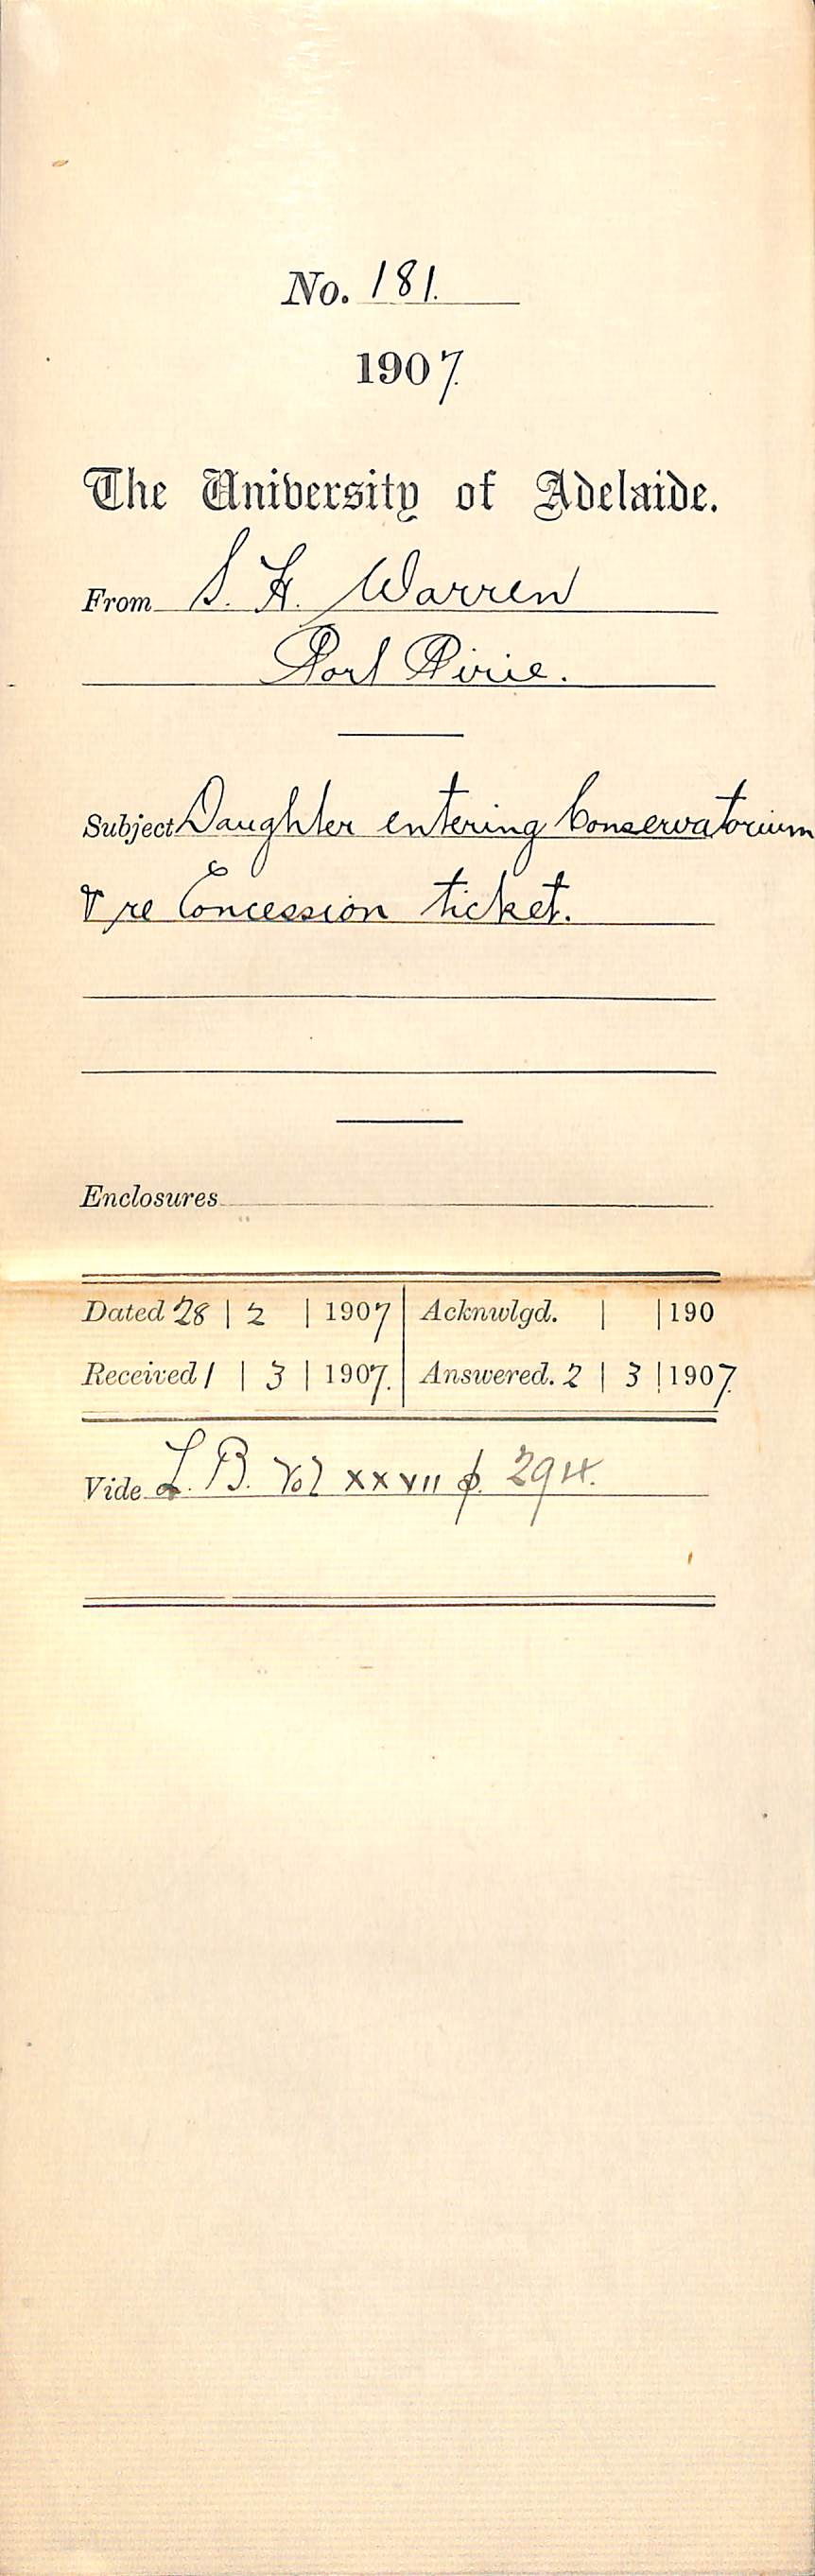 No. 181.
1907.
The University of Adelaide.
From S. H. Warren
Port Pirie.
Subject Daughter entering Conservatorium
& re Concession ticket.
Enclosures
Dated 28 | 2 | 1907 | Acknwlgd. | | 190
Received 1 | 3 | 1907. | Answered. 2 | 3 | 1907.
Vide L. B. Vol xxvii p. 294.